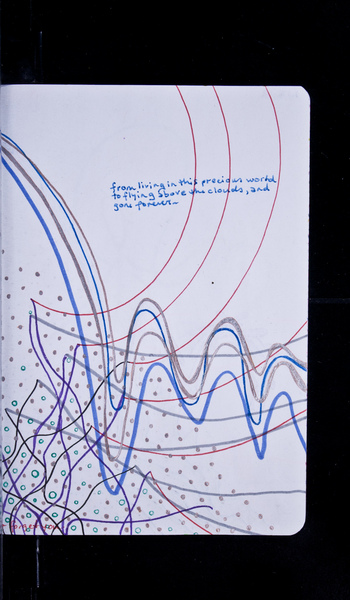 from living in this precious world
to flying above the clouds, and
gone forever~